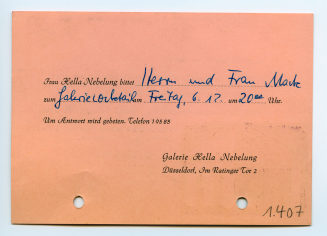 Frau Hella Nebelung bittet Herrn und Frau Mack
zum Galeriecocktail am Freitag, 6.12. um 20⁰⁰ Uhr.
Um Antwort wird gebeten. Telefon 19888
Galerie Hella Nebelung
Düsseldorf, Im Ratinger Tor 2
1.407